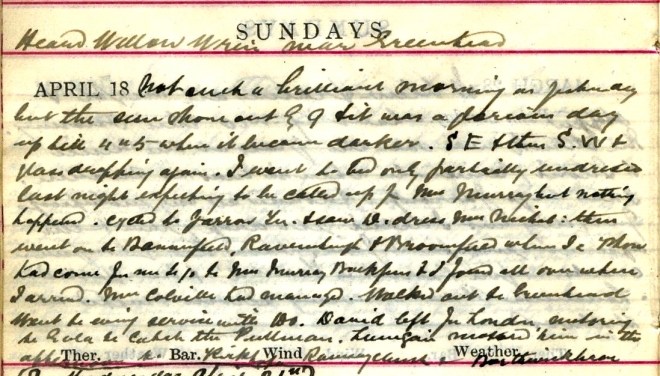 SUNDAYS
Heard Willow Wren near Greenhead
APRIL 18 Not such a brilliant morning as yesterday
but the sun shone out & it was a glorious day
up till 4.45 when it became darker. S E & then S.W &
glass dropping again. I went to bed only partially undressed
last night expecting to be called up for Mrs Murray but nothing
happened. cycled to & saw D. dress Mrs Nichol: then
went on to Ravensheugh & Broomfield when a phone
had come for me to go to Mrs Murray & I found all over when
I arrived. Mrs Colville had managed. Walked out to Greenhead
went to evening service with Do. David left for London motoring
to catch the Pullman. motored him in the
Ther. Bar. Wind Weather